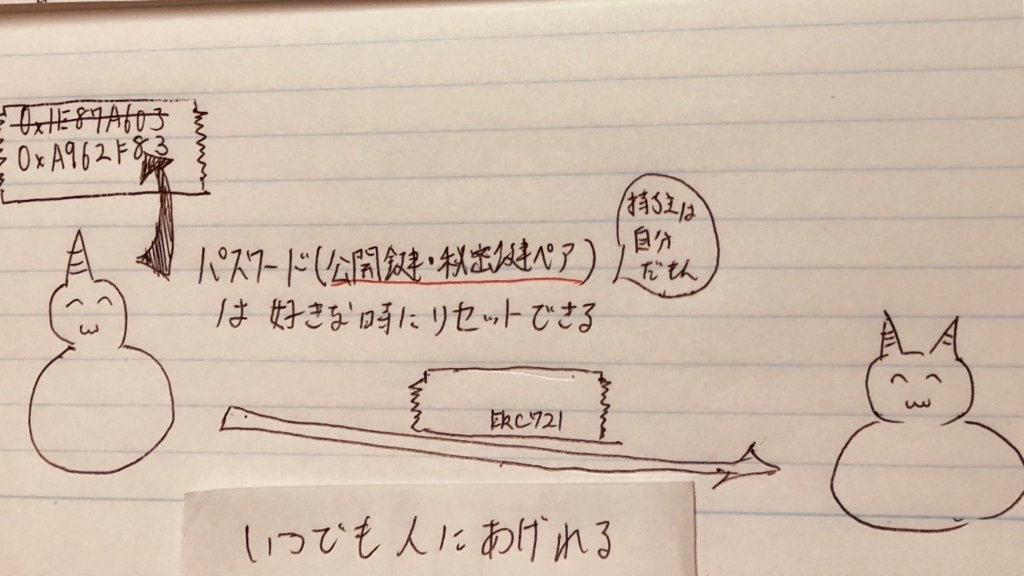 0x1E87A603
0xA962F83
パスワード(公開鍵・秘密鍵ペア)
は好きな時にリセットできる
持ち主は
自分
だもん
ERC721
いつでも人にあげれる